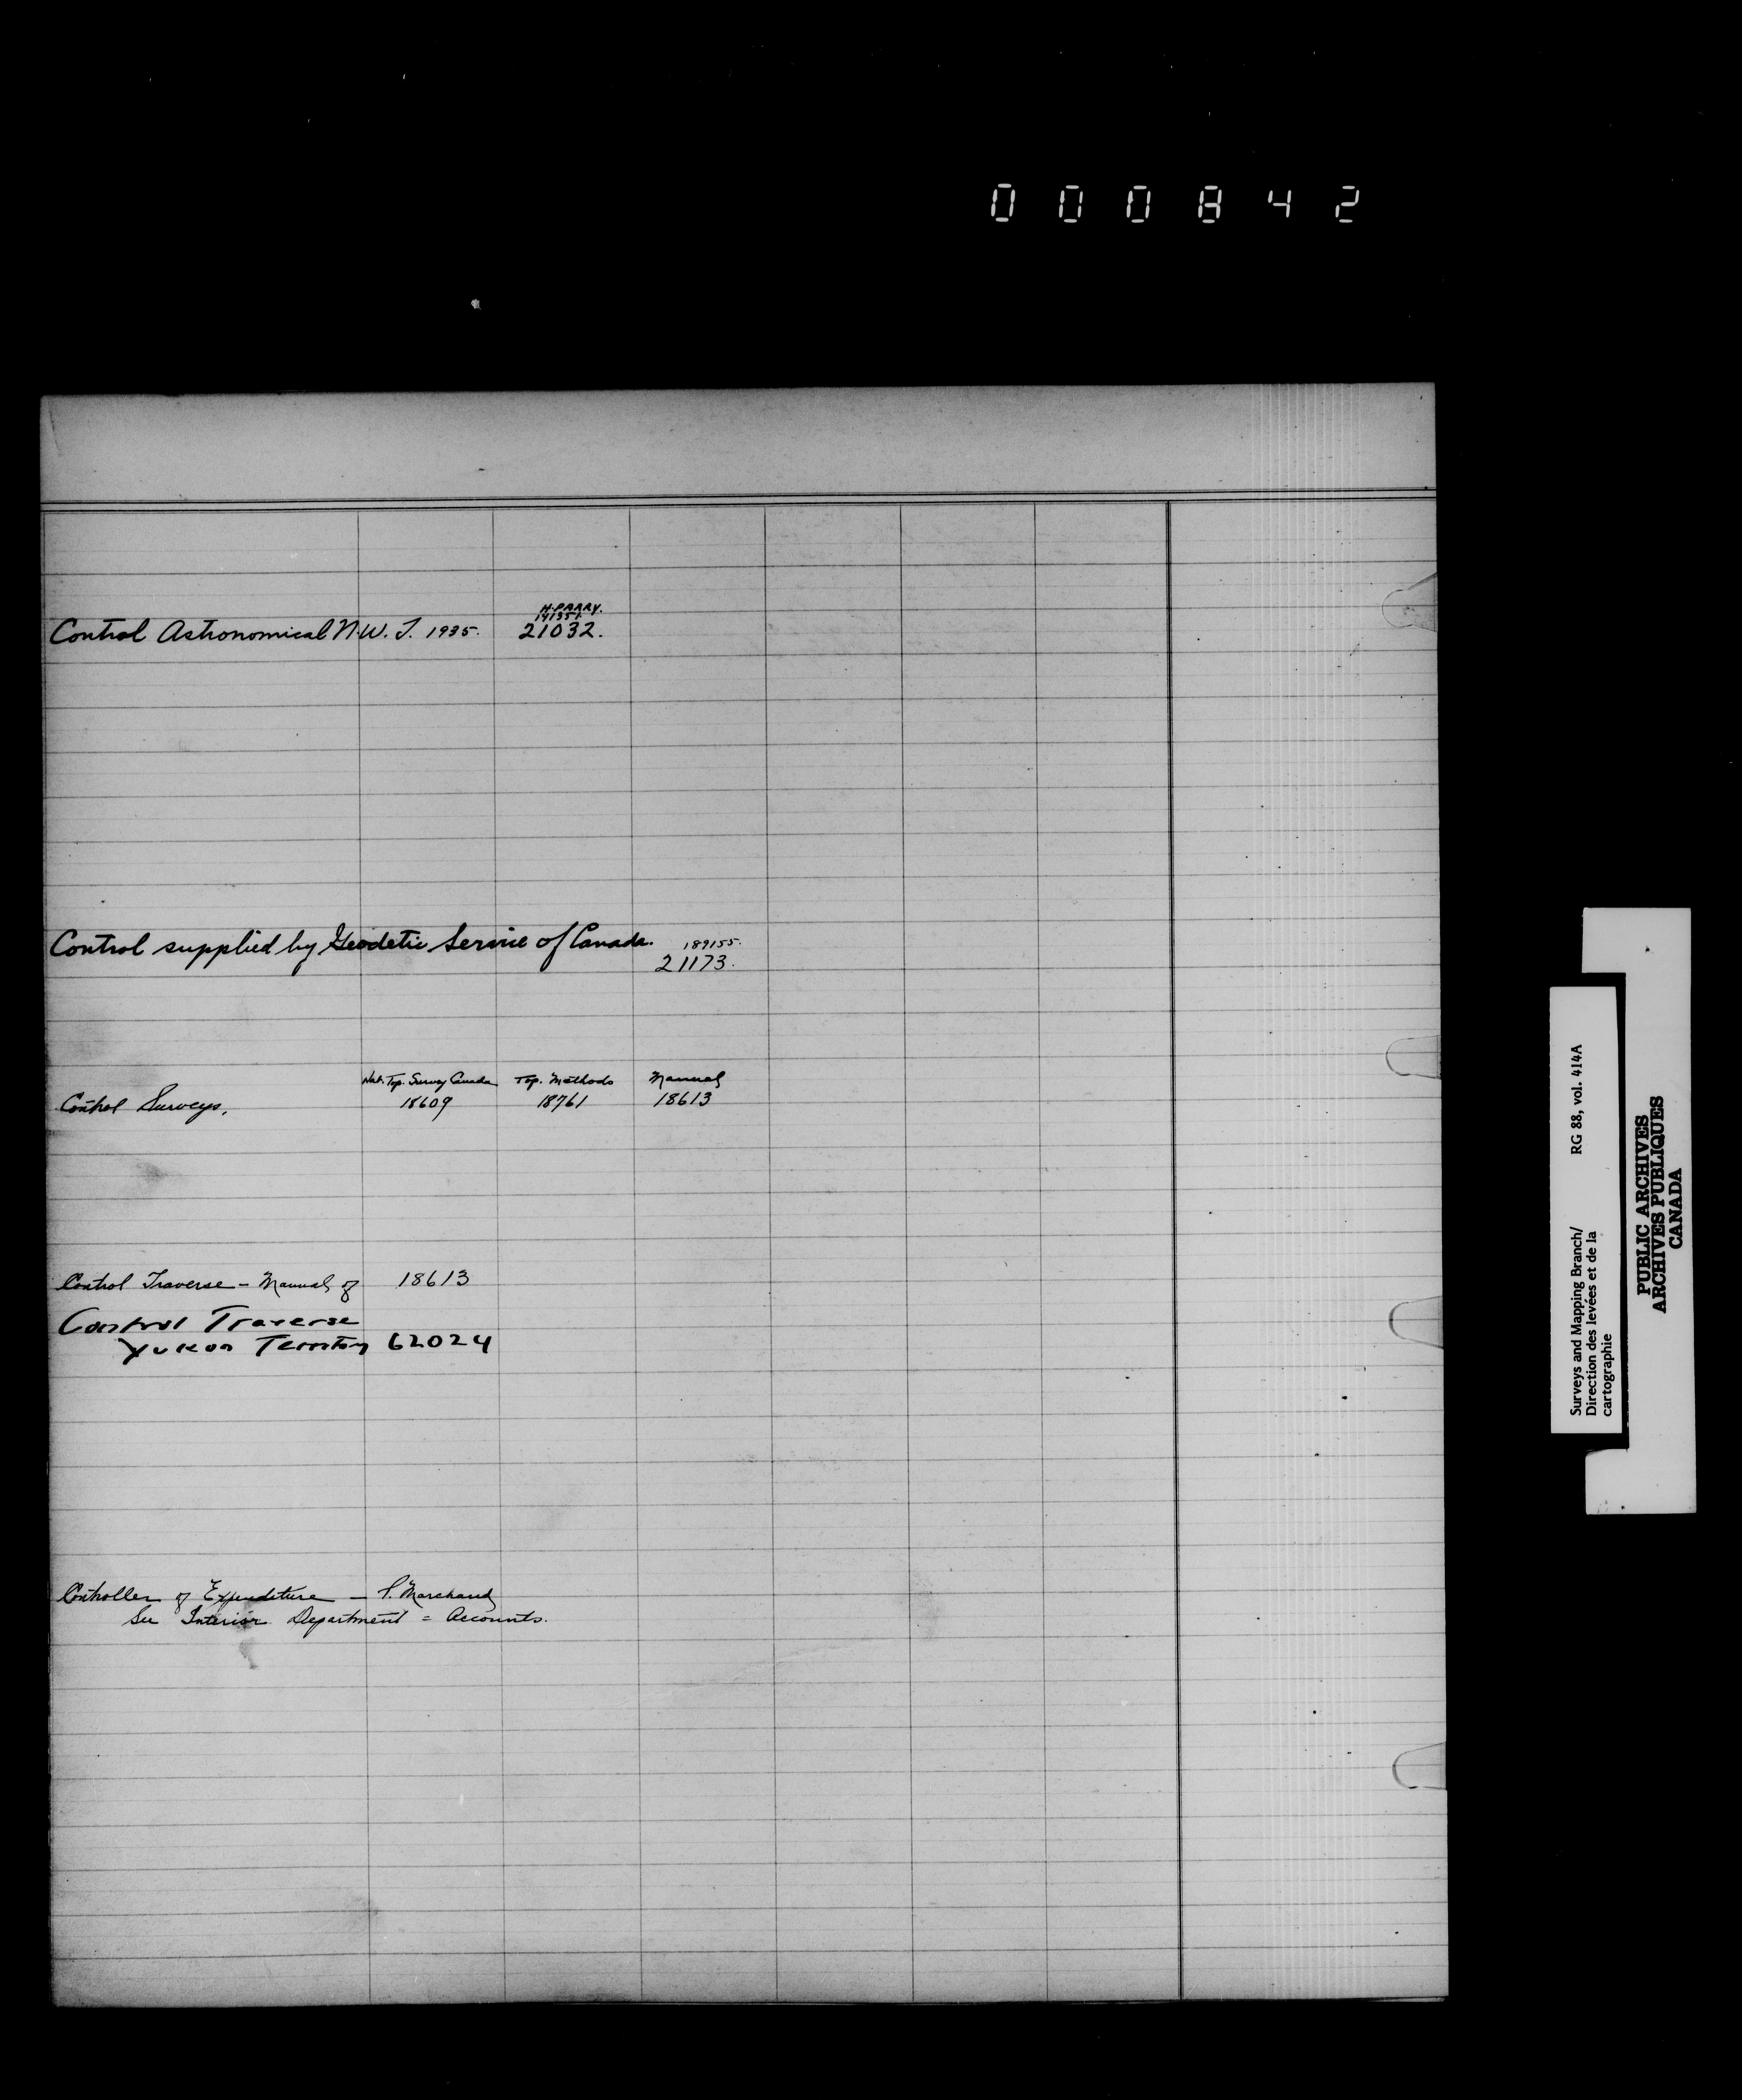 000842
H. PARRY.
141351.
Control Astronomical N.W.T. 1935. 21032.
Control supplied by Geodetic Service of Canada. 189155.
21173.
Nat. Top. Survey Canada Top. Methods Manual
Control Surveys. 18609 18761 18613
Control Traverse - Manual of 18613
Control Traverse
Yukon Territory 62024
Controller of Expenditure - Marchand
See Interior Department = Accounts.
Surveys and Mapping Branch/ RG 88, vol. 414A
Direction des levées et de la
cartographie
PUBLIC ARCHIVES
ARCHIVES PUBLIQUES
CANADA